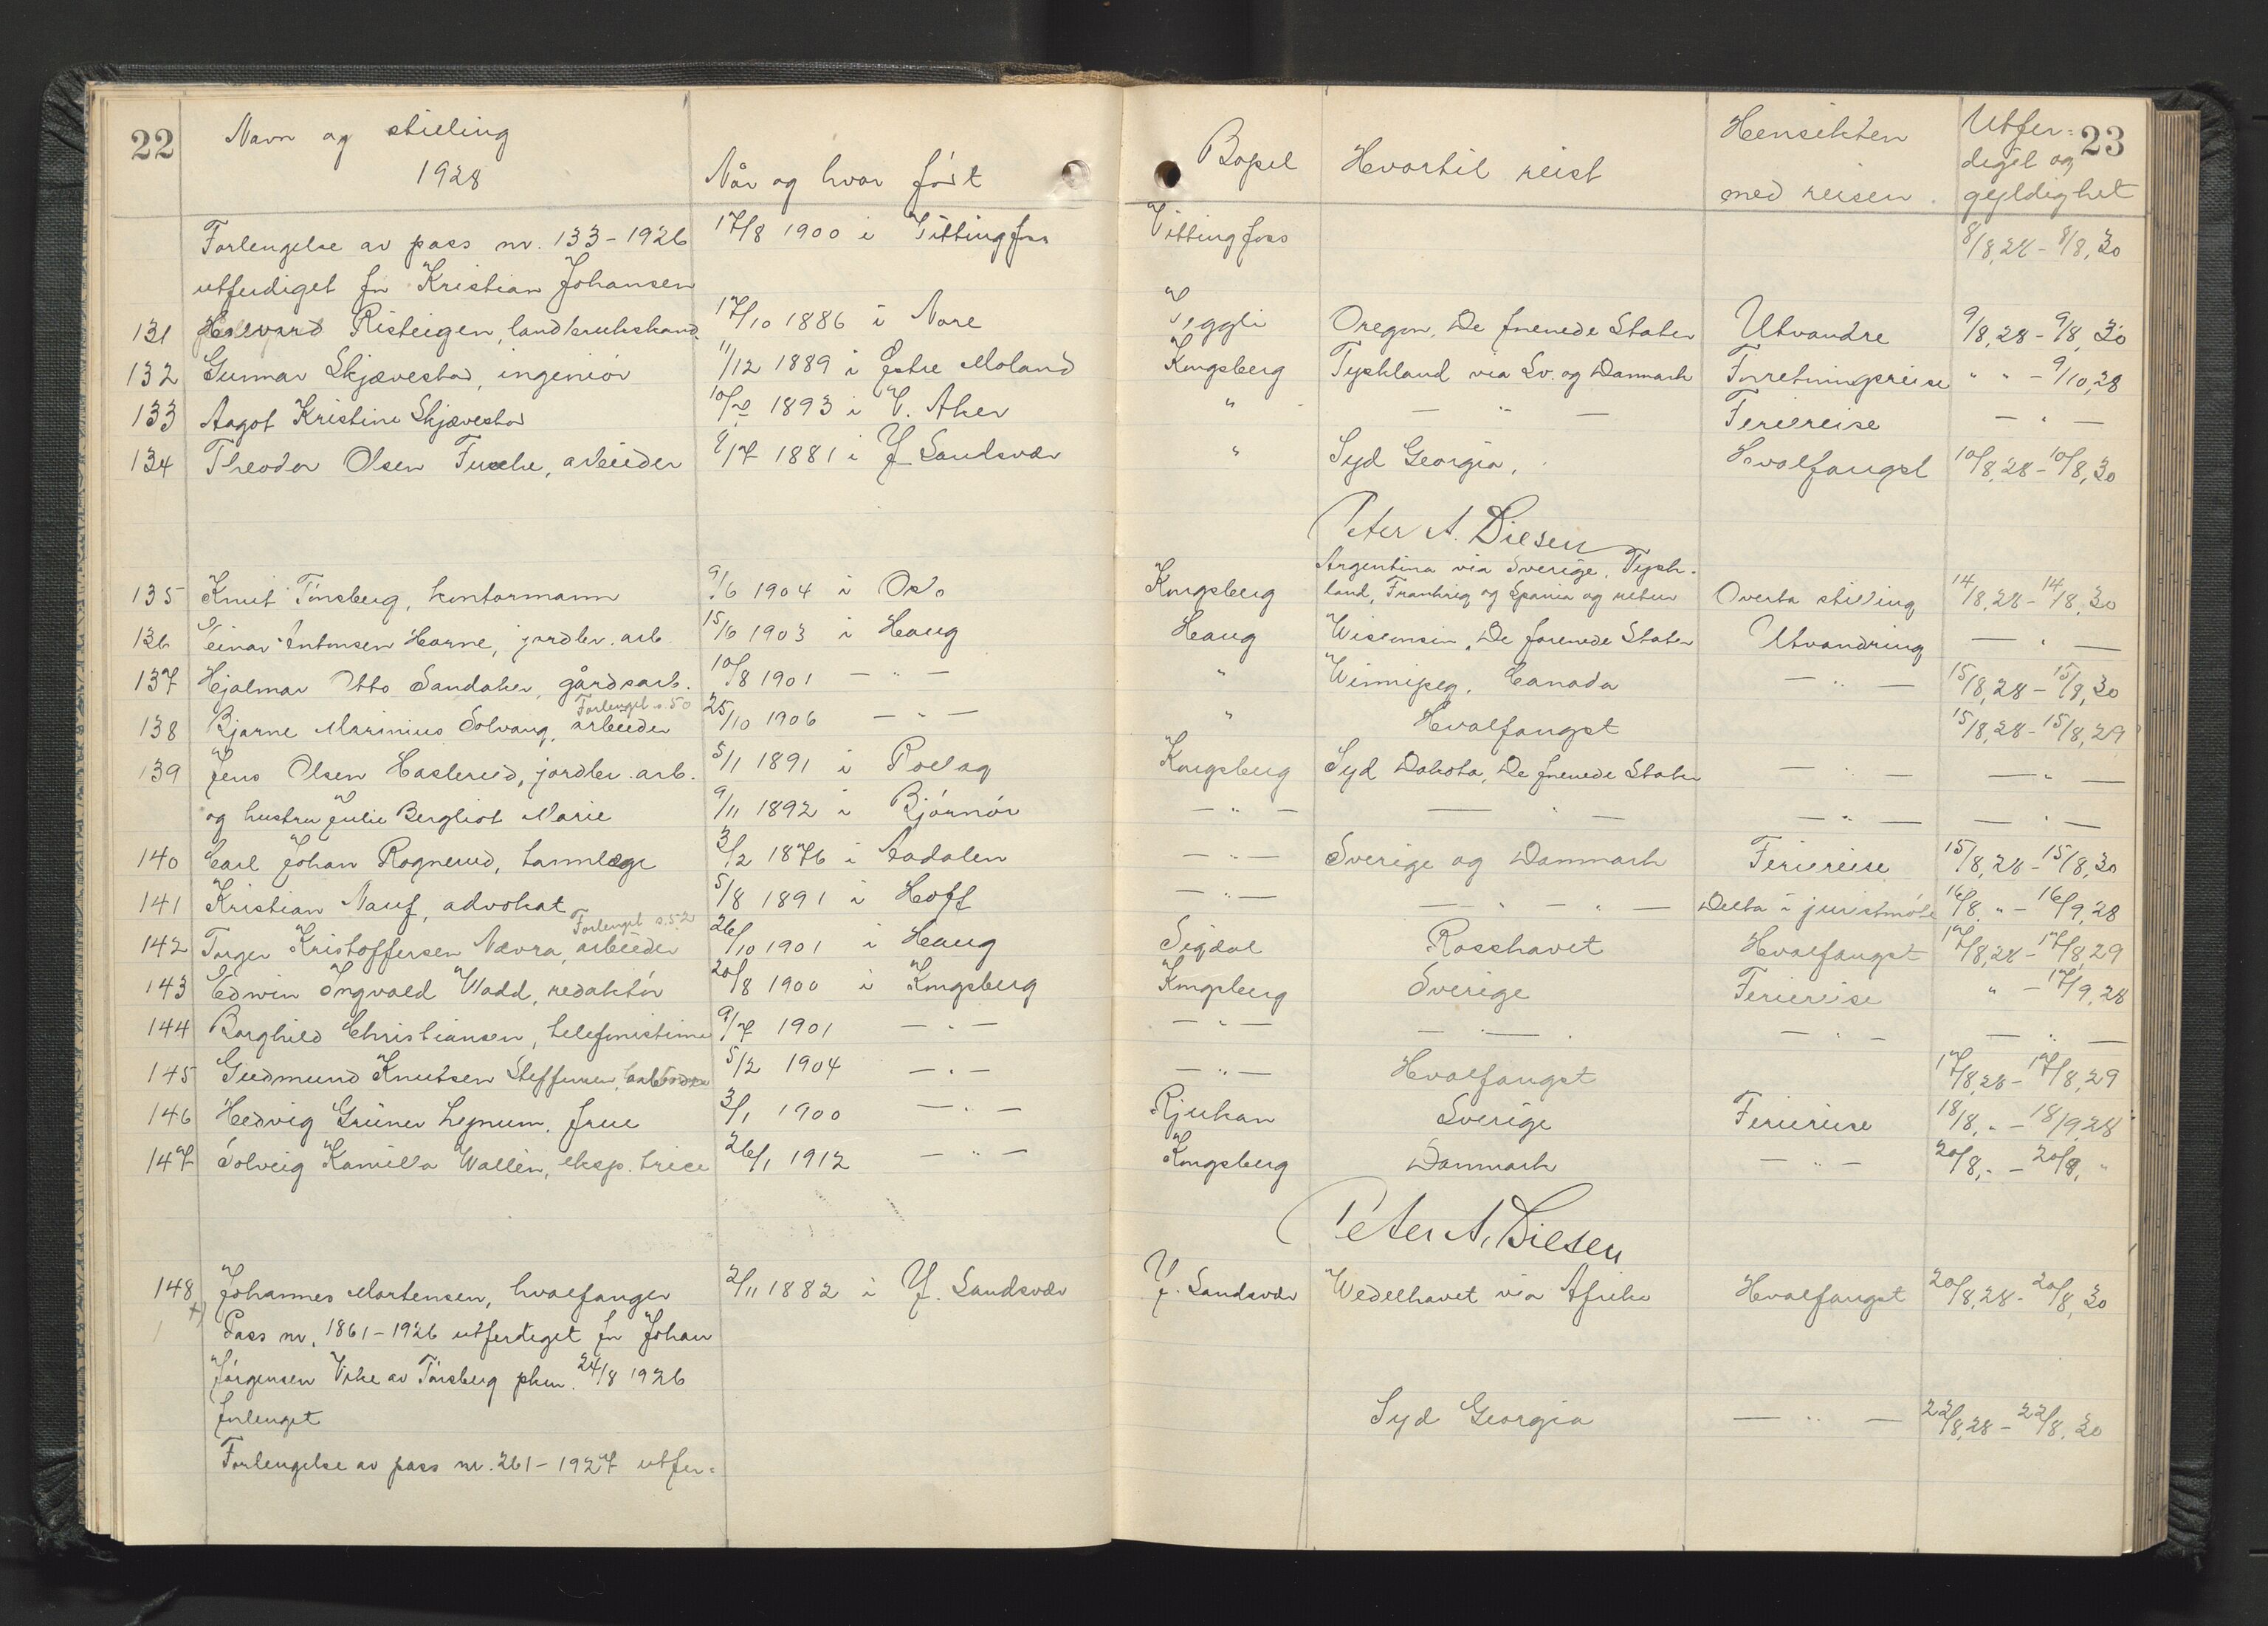 22 Navn og stilling Når og hvor født Bopel Hvortil reist Hensikten Utfer= 23
1928 med reisen. diget og
gyldighet
Forlengelse av pass nr. 133-1926 17/8 1900 i Vittingfoss Vittingfoss 8/8,28 - 8/8,30
utferdiget for Kristian Johansen
131 Halvard Risteigen, landbrukskand. 17/10 1886 i Nore Veggli Oregon, De forenede Stater Utvandre 9/8,28 - 9/8,30
132 Gunnar Skjævestad, ingeniør 11/12 1889 i Østre Moland Kongsberg Tyskland via Sv. og Danmark Forretningsreise " " - 9/10,28
133 Aagot Kristine Skjævestad 1893 i V. Aker " — " — Feriereise — " —
134 Theodor Olsen arbeider 1881 i Y. Sandsvær " Syd Georgia. Hvalfangst 10/8,28 - 10/8,30
Peter A. Diesen
Argentina via Sverige, Tysk-
135 Knut Tønsberg, kontormann 9/6 1904 i Oslo Kongsberg land, Frankrig og Spania og retur Overta stilling 14/8,28 - 14/8,30
136 Einar Antonsen Horne, jordbr. arb. 15/6 1903 i Haug Haug Wisconsin, De forenede Stater Utvandring — " —
137 Hjalmar Otto Sandaker, gårdsarb. 10/8 1901 — " — " Winnipeg, Canada — " — 15/8,28 - 15/8,30
Forlenget s. 50
138 Bjarne Marinius Solvang, arbeider 25/10 1906 — " — " Hvalfangst 15/8,28 - 15/8,29
139 Jens Olsen Haslerud, jordbr. arb. 5/1 1891 i Rollag Kongsberg Syd Dakota, De forenede Stater — " — — " —
og hustru Julie Bergliot Marie 9/11 1892 i Bjørnør — " — — " — — " — — " —
140 Carl Johan Rognerud, tannlæge 3/2 1876 i Aadalen — " — Sverige og Danmark Feriereise 15/8,28 - 15/8,30
141 Kristian Nauf, advokat 5/8 1891 i Hoff — " — — " — " — Delta i juristmøte 16/8, " - 16/9,28
Forlenget s. 52
142 Torger Kristoffersen Nævra, arbeider 26/10 1901 i Haug Sigdal Rosshavet Hvalfangst 17/8,28 - 17/8,29
143 Edwin Ingvald Wadd, redaktør 20/8 1900 i Kongsberg Kongsberg Sverige Feriereise " - 17/9,28
144 Borghild Christiansen, telefonistinne 9/7 1901 — " — — " — — " — — " — — " —
145 Gudmund Knutsen Steffensen, 5/12 1904 — " — — " — Hvalfangst 17/8,28 - 17/8,29
146 Hedvig Grüner Lynum, frue 3/1 1900 — " — Rjukan Sverige Feriereise 18/8, " - 18/9,28
147 Solveig Kamilla Wallèn, eksp. trice 26/1 1912 — " — Kongsberg Danmark — " — 20/8, " - 20/9, "
Peter A. Diesen
148 Johannes Mortensen, hvalfanger 2/11 1882 i Y. Sandsvær Y. Sandsvær Wedelhavet via Afrika Hvalfangst 20/8,28 - 20/8,30
+) Pass nr. 1861-1926 utferdiget for Johan
Jørgensen Vike av Tønsberg pkm. 24/8 1926
forlenget Syd Georgia — " — 22/8,28 - 22/8,30
Forlengelse av pass nr. 261-1927 utfer=